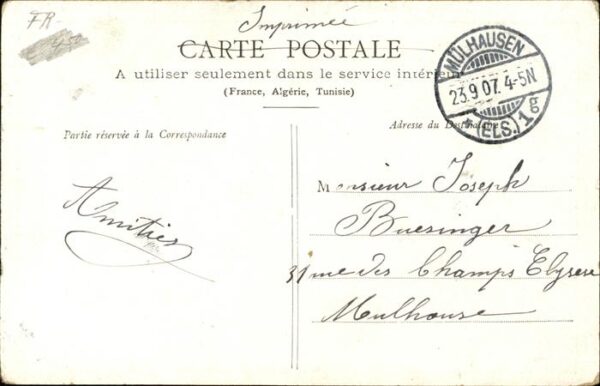 FR
Imprimée
CARTE POSTALE
A utiliser seulement dans le service intérieur
(France, Algérie, Tunisie)
MÜLHAUSEN
23.9 07. 4-5N
* (ELS.) 1g
Partie réservée à la Correspondance
Adresse du Destinataire
Amitiés
Monsieur Joseph
Buesinger
31 rue des Champs Elysées
Mulhouse